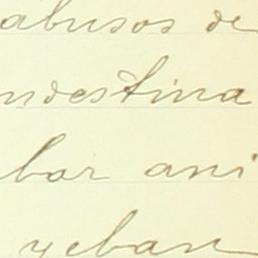 abusos de
ndestina
bar ani
yeban